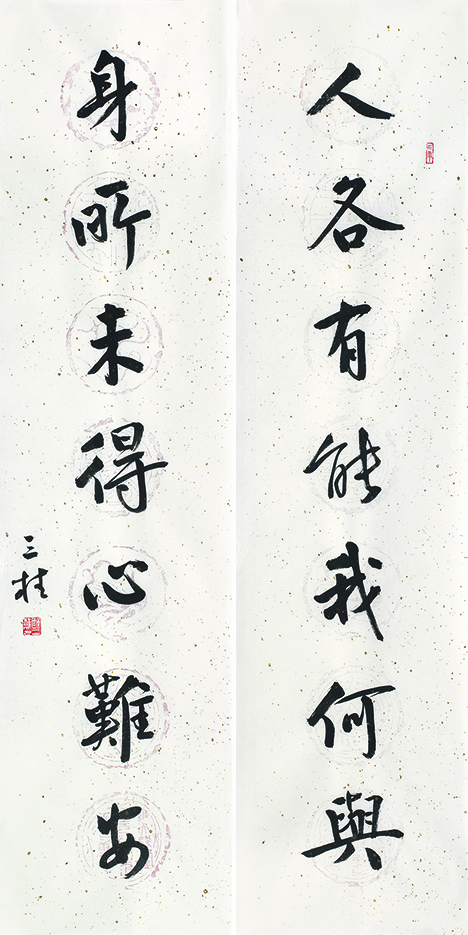 人各有能我何與
身所未得心難安
三桂